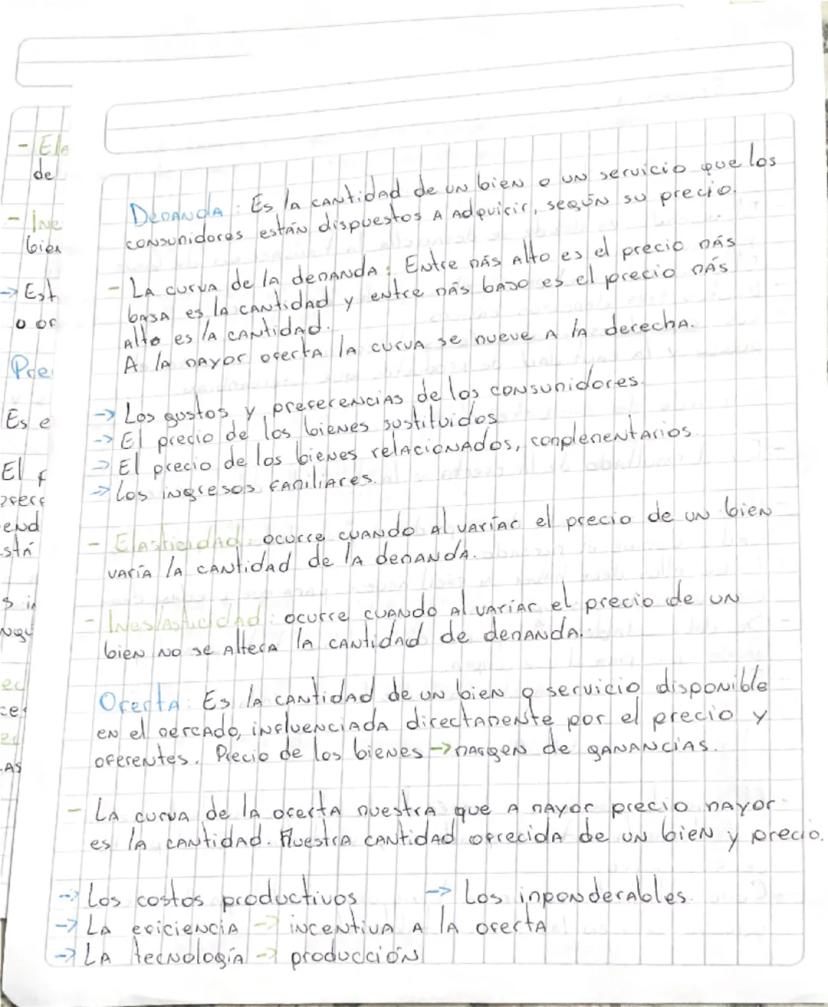 - Ela
de
- Ine
bien
→ Est
o or
Pre
Es e
El f
end
Demanda: Es la cantidad de un bien o un servicio que los
consumidores están dispuestos a adquirir, según su precio.
- La curva de la demanda: Entre más alto es el precio más
baja es la cantidad y entre más bajo es el precio más
alto es la cantidad.
A la mayor oferta la curva se mueve a la derecha.
→ Los gustos y preferencias de los consumidores.
→ El precio de los bienes sustituidos
→ El precio de los bienes relacionados, complementarios
→ Los ingresos familiares.
- Elasticidad: ocurre cuando al variar el precio de un bien
varía la cantidad de la demanda.
- Ineslasticidad: ocurre cuando al variar el precio de un
bien no se altera la cantidad de demanda.
Oferta: Es la cantidad de un bien o servicio disponible
en el mercado, influenciada directamente por el precio y
oferentes. Precio de los bienes → margen de ganancias.
- La curva de la oferta muestra que a mayor precio mayor
es la cantidad. Muestra cantidad ofrecida de un bien y precio.
→ Los costos productivos → Los imponderables.
→ La eficiencia → incentiva a la oferta
→ La tecnología → producción